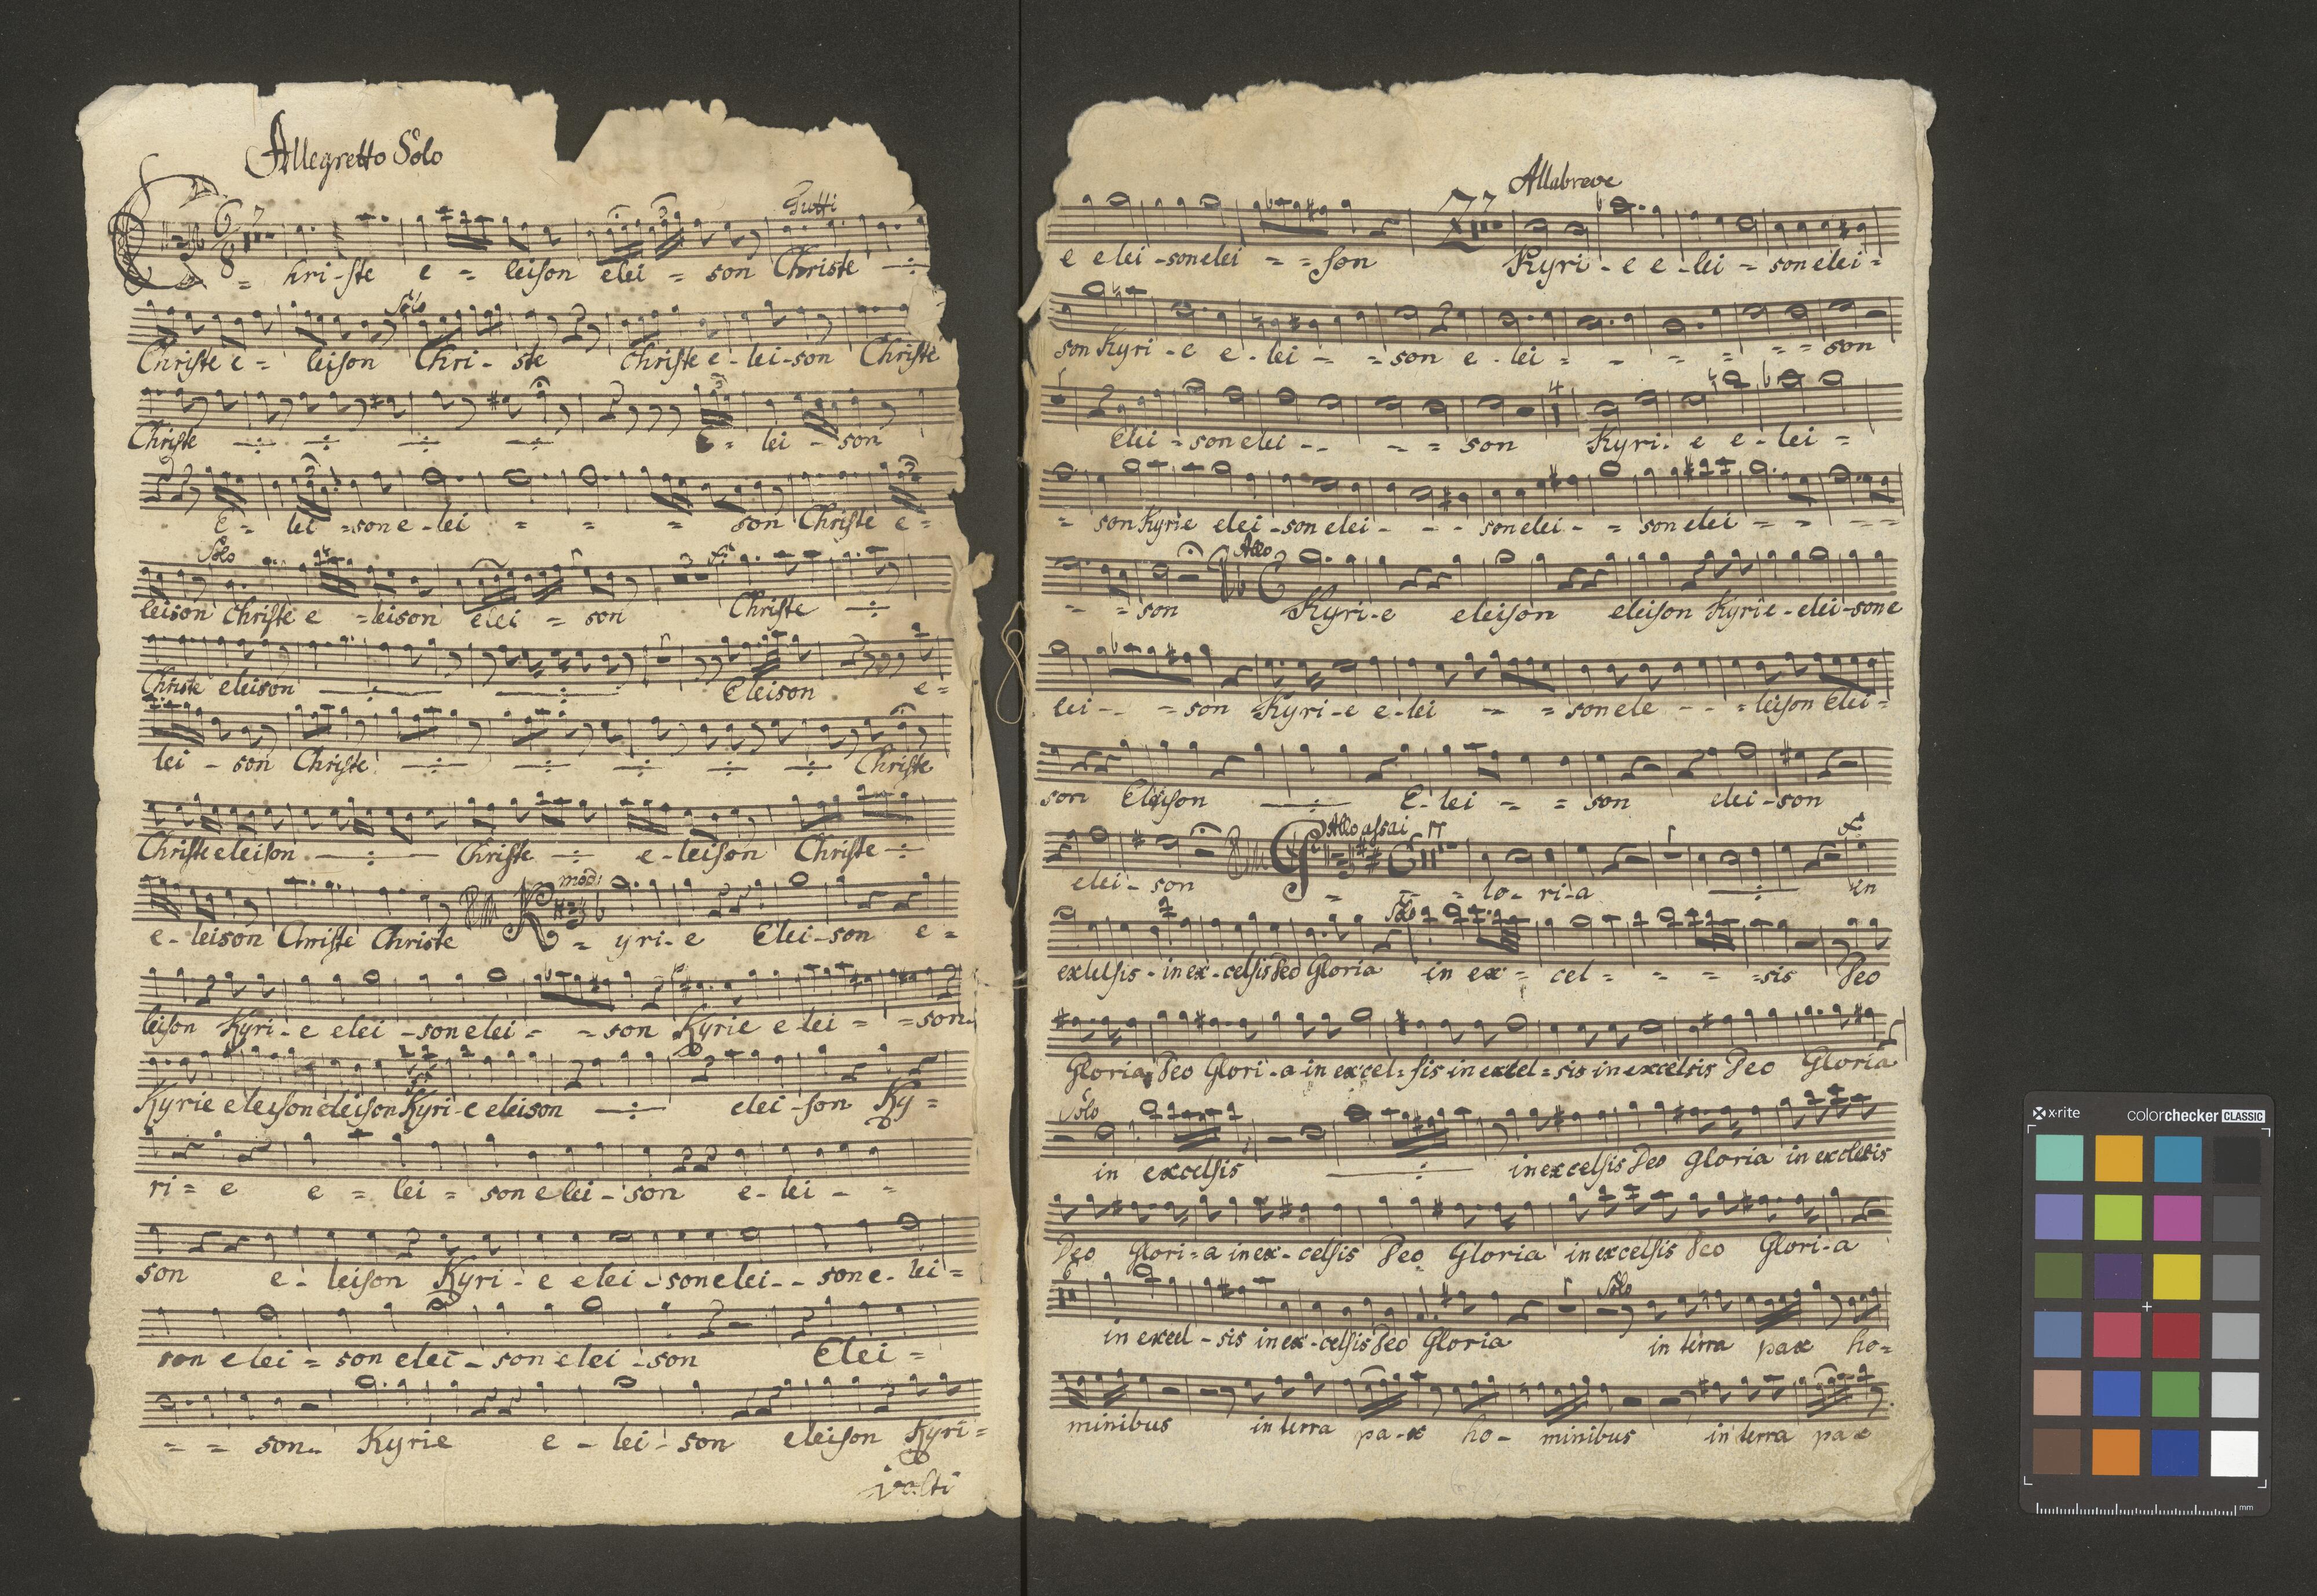 Allegretto Solo
Tutti
6/8 7
Christe e = leison elei = son Christe
Solo
Christe e = leison Chri - ste Christe e - lei - son Christe
Christe E = lei - son
E = lei = son e - lei = = = son Christe e =
Solo 3
leison Christe e = leison elei = son Christe
Christe eleison Eleison e =
lei - son Christe Christe
Christe eleison Christe e - leison Christe
mod:
e - leison Christe Christe K = yri - e Elei - son e =
leison Kyri - e elei - son elei = = son Kyrie e lei = = son
Kyrie eleison eleison Kyri - e eleison elei - son Ky =
ri = e e = lei = son e lei - son e - lei - =
son e - leison Kyri - e elei - son elei - - son e - lei =
son e lei = son elei - son e lei - son Elei =
= = son Kyrie e - lei - son eleison Kyri =
volti
Allabreve
7
e e lei - son elei = = son Kyri - e e - lei = son elei =
son Kyri - e e - lei - = son e - lei = - = = = = son
4
elei - son elei - - - = son Kyri - e e - lei =
= son Kyrie elei - son elei - - - son elei - = son elei = = - =
Allo
- = son Kyri - e eleison eleison Kyrie - elei - son e
lei - - = son Kyri - e e - lei - = son ele - - = leison Elei =
son Eleison E - lei = = son elei - son
Allo assai 17
elei - son G = = = lo - ri - a in
Solo
excelsis - in ex - celsis Deo Gloria in ex = cel = = = = sis Deo
Gloria Deo Glori - a in excel = sis in excel = sis in excelsis Deo Gloria
Solo
in excelsis in excelsis Deo Gloria in excelsis
Deo Glori = a in ex - celsis Deo Gloria in excelsis Deo Glori - a
6 Solo
in excel - sis in ex - celsis Deo Gloria in terra pax ho =
minibus in terra pa - x ho - minibus in terra pax
x·rite colorchecker CLASSIC
mm